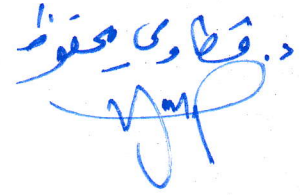 د. قطاوي محفوظ